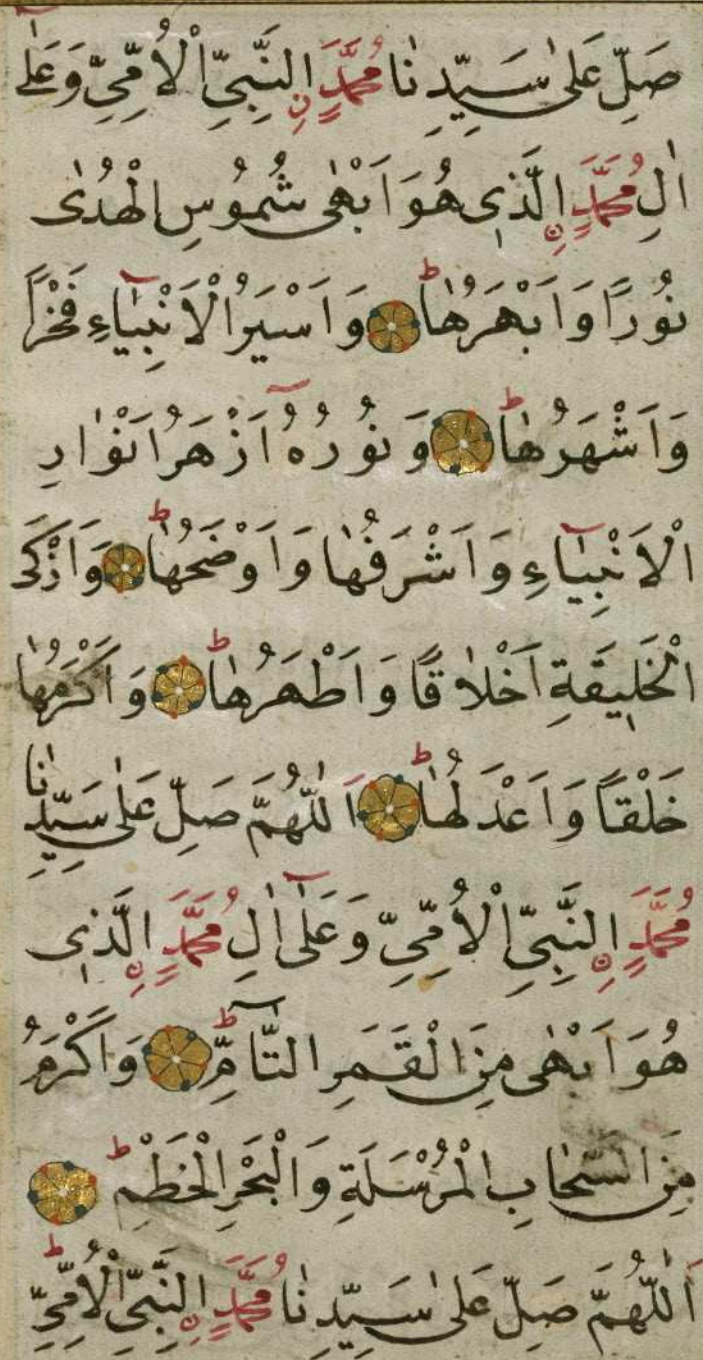 صَلِّ عَلٰى سَيِّدِنٰا مُحَمَّدٍ نِ النَّبِيِّ الْاُمِّيِّ وَعَلٰٓى
اٰلِ مُحَمَّدٍ نِ الَّذٖى هُوَ اَبْهٰى شُمُوسِ الْهُدٰى
نُورًا وَاَبْهَرُهٰاط وَاَسْيَرُ الْاَنْبِيٰٓاءِ فَخْرًا
وَاَشْهَرُهٰاط وَنُورُهُٓ اَزْهَرُ اَنْوٰارِ
الْاَنْبِيٰٓاءِ وَاَشْرَفُهٰا وَاَوْضَحُهٰاط وَاَزْكَى
الْخَلٖيقَةِ اَخْلٰاقًا وَاَطْهَرُهٰاط وَاَكْرَمُهٰا
خَلْقًا وَاَعْدَلُهٰاط اَللّٰهُمَّ صَلِّ عَلٰى سَيِّدِنٰا
مُحَمَّدٍ نِ النَّبِيِّ الْاُمِّيِّ وَعَلٰٓى اٰلِ مُحَمَّدٍ نِ الَّذٖى
هُوَ اَبْهٰى مِنَ الْقَمَرِ التَّٓامِّط وَاَكْرَمُ
مِنَ السَّحٰابِ الْمُرْسَلَةِ وَالْبَحْرِ الْخَطْمِط
اَللّٰهُمَّ صَلِّ عَلٰى سَيِّدِنٰا مُحَمَّدٍ نِ النَّبِيِّ الْاُمِّيِّط